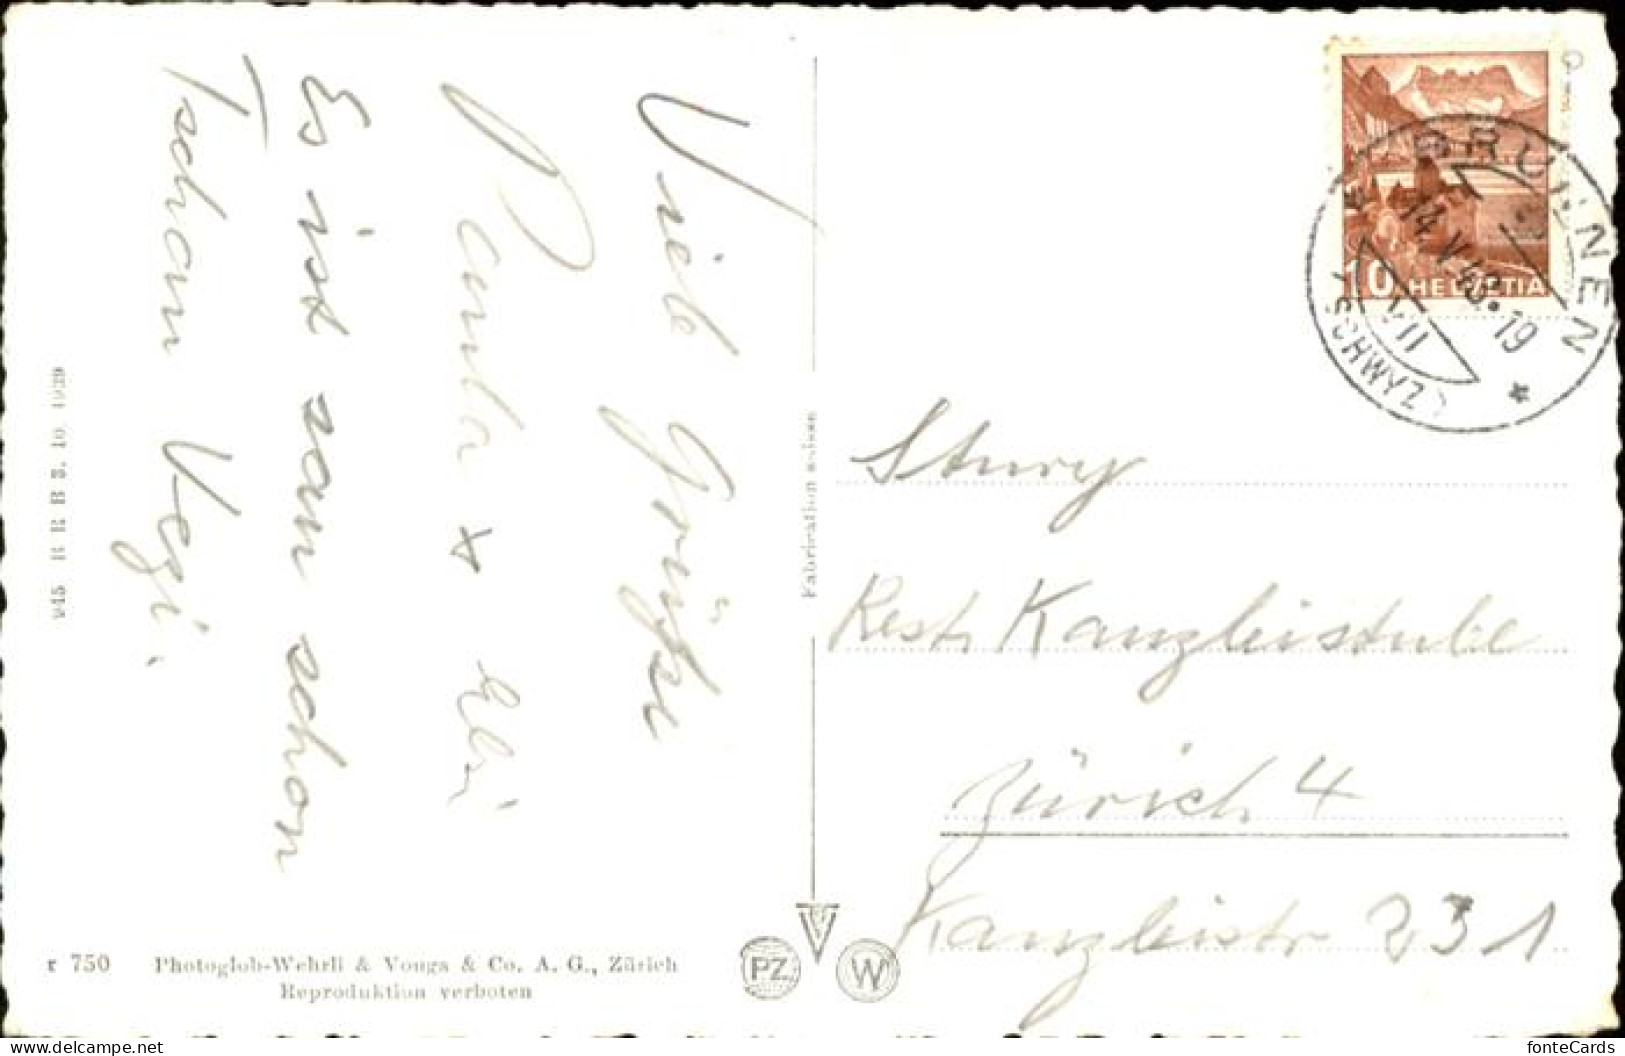 Viele Grüsse
Paula + Elsi
Es ist
schon
Tscham Vegi.
945 R R B 3. 10. 1939
r 750
Photoglob-Wehrli & Vouga & Co. A. G., Zürich
Reproduktion verboten
Fabrication suisse
PZ
W
10 HELVETIA
BRUNNEN
14. V. 48. 19
VII
(SCHWYZ)
Rest. Kanzleistube
Zürich 4
Kanzleistr 231
fonteCards